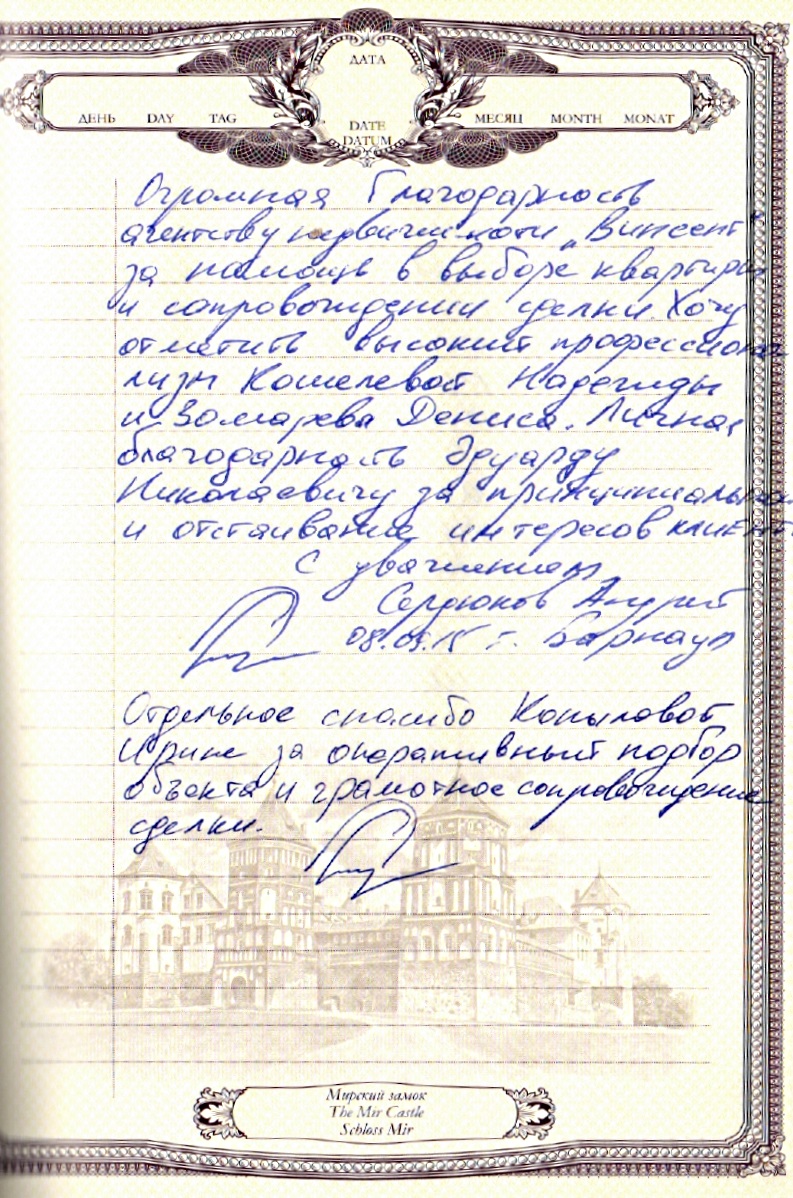 ДАТА
ДЕНЬ DAY TAG
DATE
DATUM
МЕСЯЦ MONTH MONAT
Огромная благодарность
агентству недвижимости „Винсент"
за помощь в выборе квартиры
и сопровождении сделки Хочу
отметить высокий профессиона
лизм Кошелевой Надежды
и Дениса. Личная
благодарность Эдуарду
Николаевичу за
и отстаивание интересов
С уважением
Сердюков Андрей
08.09.15 г. Барнаул
Отдельное спасибо Копыловой
Ирине за оперативный подбор
объекта и грамотное сопровождение
сделки.
Мирский замок
The Mir Castle
Schloss Mir